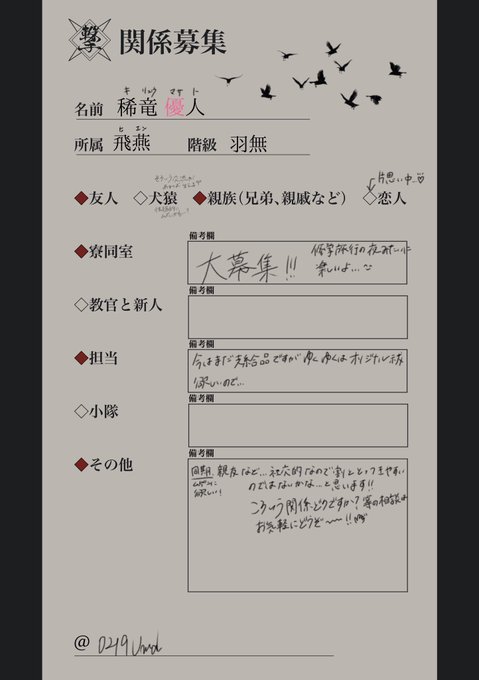 撃 関係募集
キ リュウ マサ ト
名前 稀竜 優人
ヒ エン
所属 飛燕 階級 羽無
片思い中…♡
◆友人 ◇犬猿 ◆親族(兄弟、親戚など) ◇恋人
備考欄
◆寮同室 大募集!!! 修学旅行の夜みたいに
楽しいよ…
備考欄
◇教官と新人
備考欄
◆担当 今はまだ支給品ですが ゆくゆくは オリジナル
欲しいので…
備考欄
◇小隊
備考欄
◆その他 同期、親友など…社交的なので割ととっつきやすい
欲しい! のではないかな…と思います!!
こういう関係どうですか?等の相談は
お気軽にどうぞ〜〜!!
@